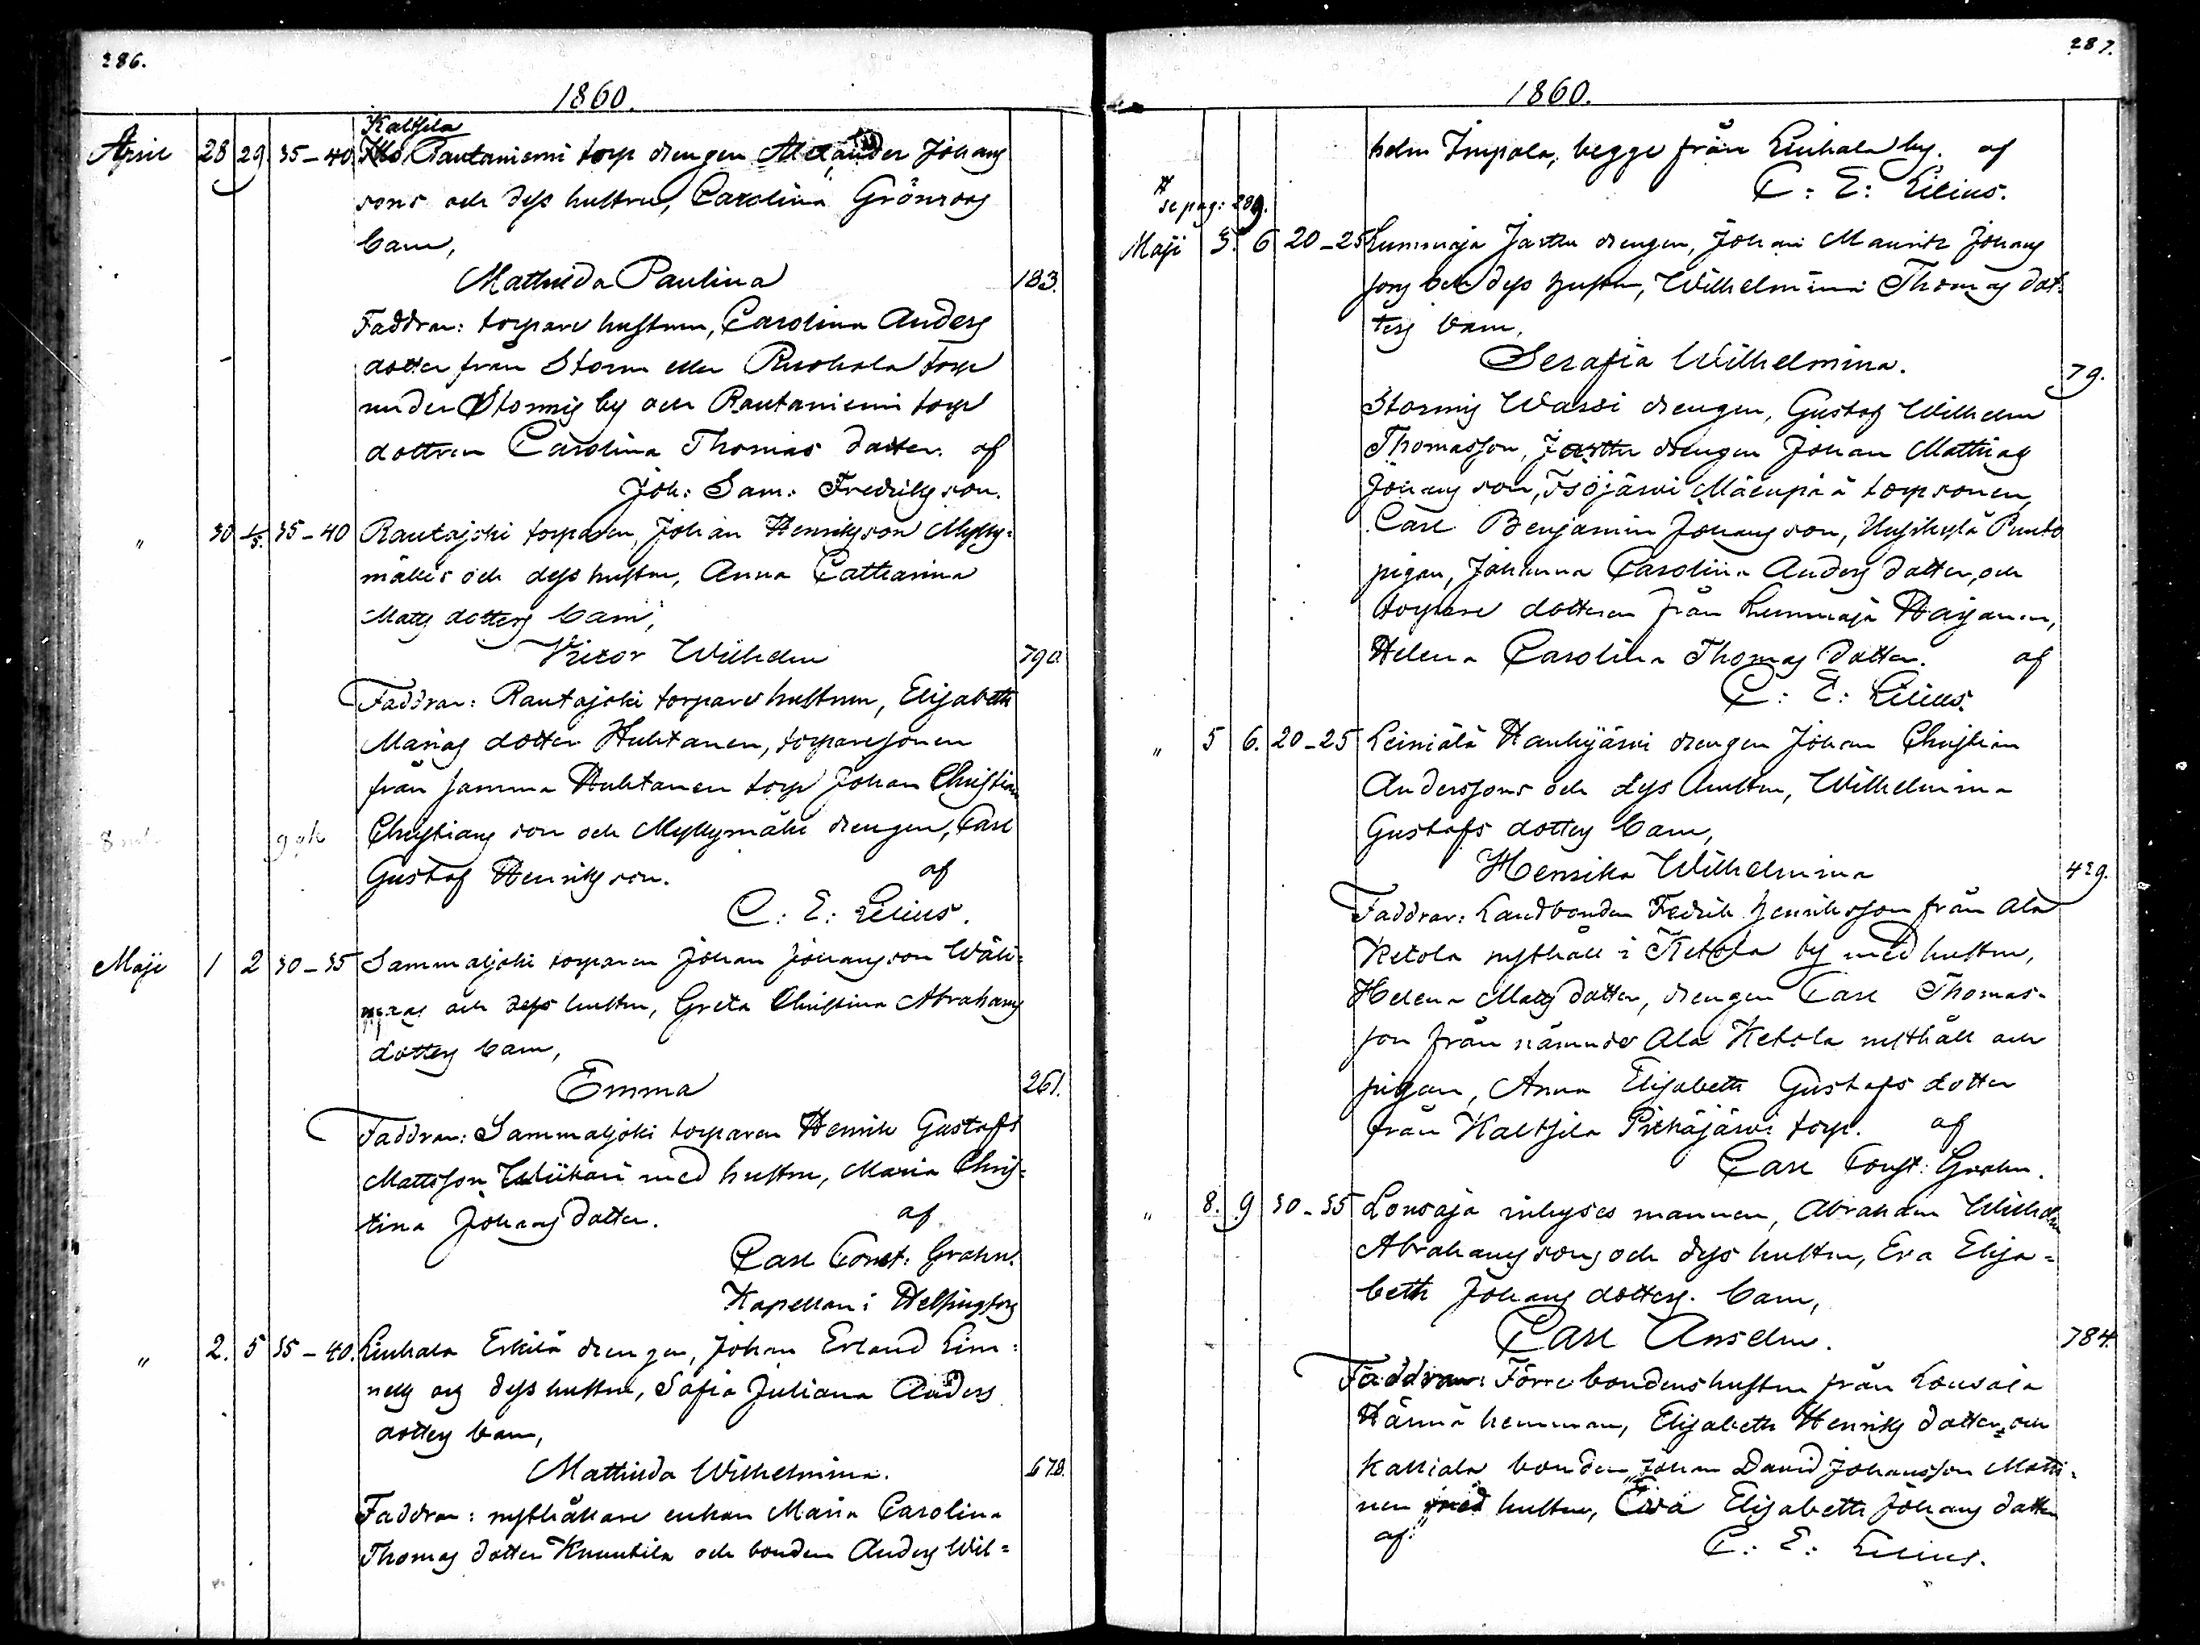 286.
1860.
Kaltsila
April 28 29 35-40 Rautaniemi torp drengen Alexander Johans
sons och dess hustru, Carolina Grönroos
barn,
Mathilda Paulina 183.
Faddrar: torpare hustrun, Carolina Anders
dotter från Storm eller Ruohola torp
under Stormis by och Rautaniemi torp
dottren Carolina Thomas dotter. af
Joh: Sam: Fredrikson.
" 30 1/5. 35-40 Rautajoki torparen, Johan Henrikson Mylly-
mäkis och dess hustru, Anna Catharina
Matts dotters barn,
Victor Wilhelm 790.
Faddrar: Rautajoki torpare hustrun, Elisabeth
Marias dotter Huhtanen, torparesonen
från samma Huhtanen torp Johan Christian
Christians son och Myllymäki drengen, Carl
Gustaf Henrikson. af
C: E: Lilius.
Maji 1 2 30-35 Sammaljoki torparen Johan Johansson Wäli-
och dess hustru, Greta Christina Abrahams
dotters barn,
Emma 261.
Faddrar: Sammaljoki torparen Henrik Gustafs
Mattsson med hustru, Maria Chris-
tina Johans dotter. af
Carl Const: Grahn.
Kapellan i Helsingfors
" 2. 5 35-40. Liuhala Erkilä drengen, Johan Erland Lin-
och dess hustru, Sofia Juliana Anders
dotters barn,
Mathilda Wilhelmina. 678.
Faddrar: rusthållare enkan Maria Carolina
Thomas dotter Knuutila och bonden Anders Wil-
287.
1860.
helm Impola, begge från Liuhala by. af
C: E: Lilius.
# se pag: 289.
Maji 5. 6 20-25 Lummaja Jartta drengen, Johan Mauritz Johans
sons och dess hustru, Wilhelmina Thomas dot-
ters barn,
Serafia Wilhelmina. 79.
Stormis Wassi drengen, Gustaf Wilhelm
Thomasson, Jartta drengen Johan Mathias
Johans son, Isojärwi Mäenpää torpsonen,
Carl Benjamin Johans son, Punto
pigan, Johanna Carolina Anders dotter, och
torpare dottren från Lummaja Harjanen,
Helena Carolina Thomas dotter. af
C: E: Lilius.
" 5 6. 20-25 Leiniälä Haukijärwi drengen Johan Christian
Anderssons och dess hustru, Wilhelmina
Gustafs dotters barn,
Henrika Wilhelmina 429.
Faddrar: Landbonden Fredrik Henriksson från Ala
Ketola rusthåll i Ketola by med hustru,
Helena Matts dotter, drengen Carl Thomas-
son från nämnde Ala Ketola rusthåll och
pigan, Anna Elisabeth Gustafs dotter
från Kaltsila Pitkäjärwi torp. af
Carl Const: Grahn.
" 8. 9 30-35 Lousaja inhyses mannen, Abraham Wilhelm
Abrahamssons och dess hustru, Eva Elisa-
beth Johans dotters. barn,
Carl Anselm. 784.
Faddrar: Förre bondens hustru från Lousaja
Hännä hemman, Elisabeth Henriks dotter, och
Kalliala bonden, Johan David Johansson Matti-
nen med hustru, Eva Elisabeth Johans dotter
af. C: E: Lilius.